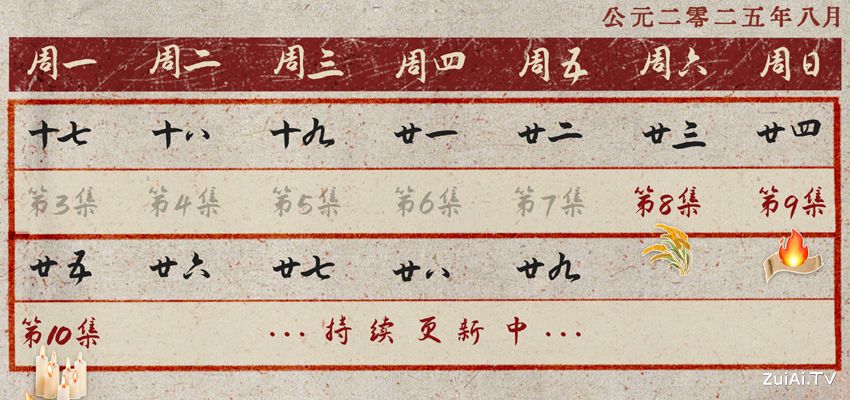 公元二零二五年八月
周一 周二 周三 周四 周五 周六 周日
十七 十八 十九 廿一 廿二 廿三 廿四
第3集 第4集 第5集 第6集 第7集 第8集 第9集
廿五 廿六 廿七 廿八 廿九
第10集 ...持续更新中...
ZuiAi.TV